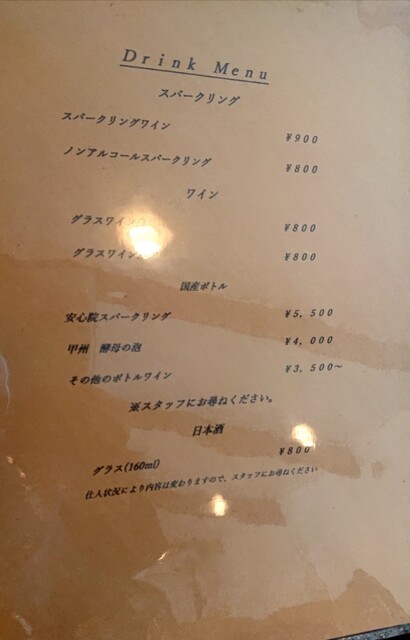 Drink Menu
スパークリング
スパークリングワイン ¥900
ノンアルコールスパークリング ¥800
ワイン
グラスワイン ¥800
グラスワイン ¥800
国産ボトル
安心院スパークリング ¥5,500
甲州 酵母の泡 ¥4,000
その他のボトルワイン ¥3,500〜
※スタッフにお尋ねください。
日本酒
グラス(160ml) ¥800
仕入状況により内容は変わりますので、スタッフにお尋ねください